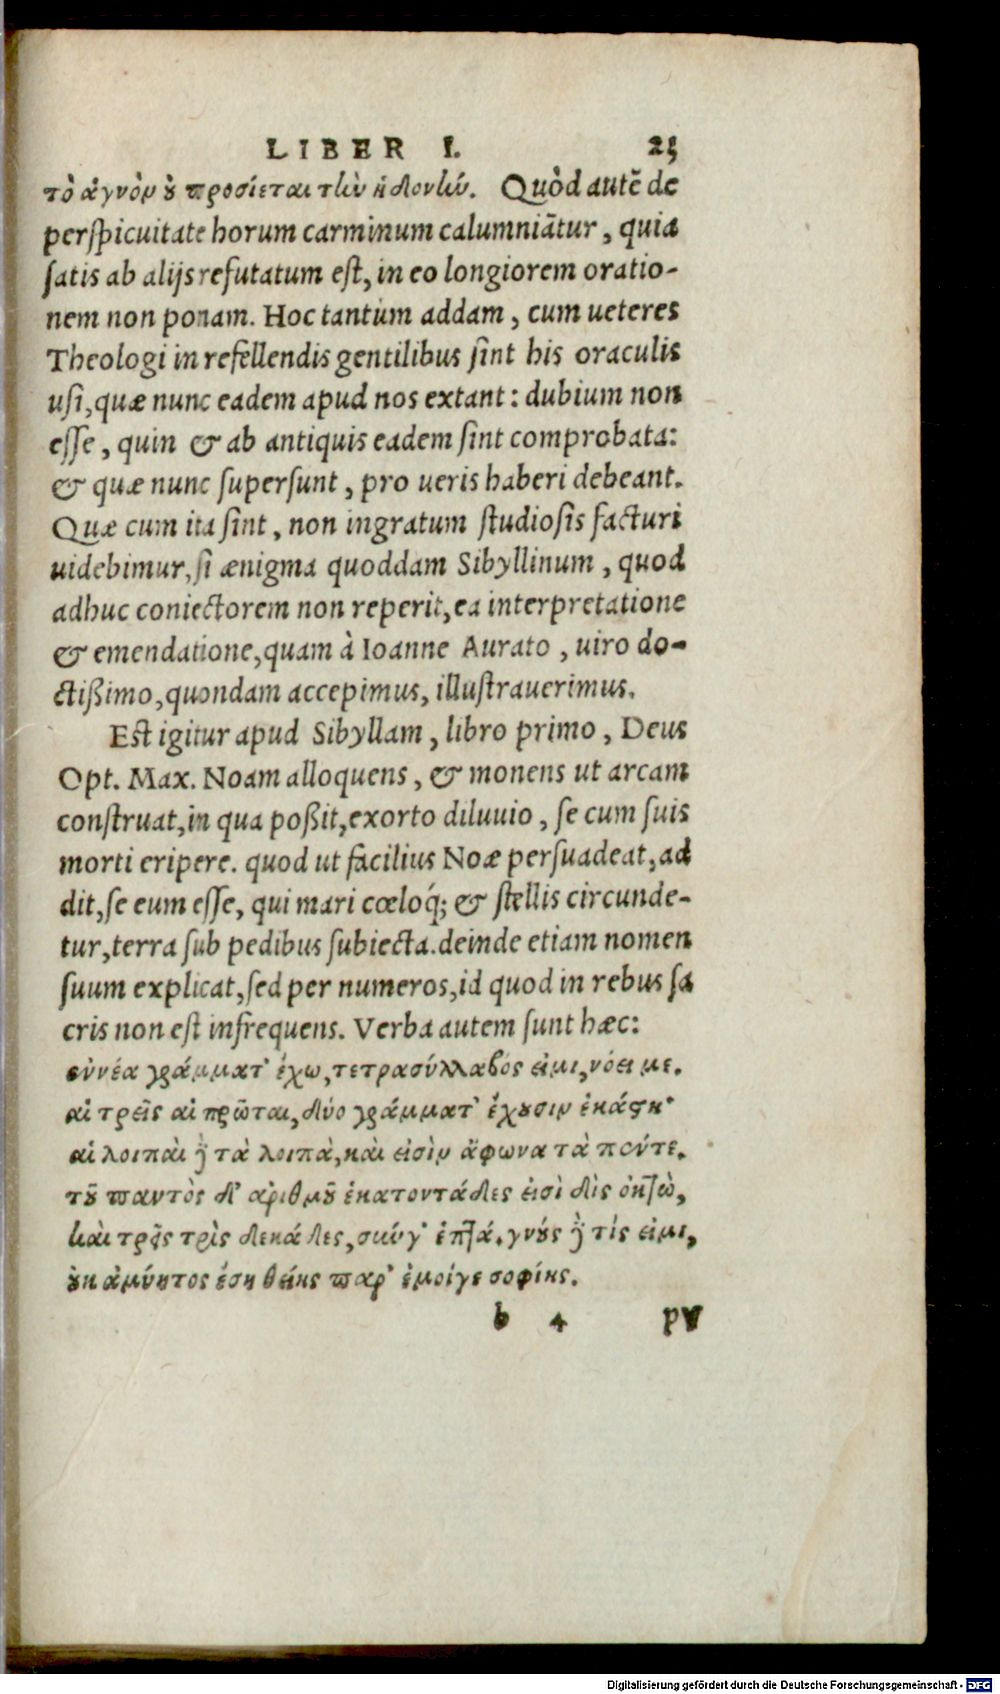 LIBER I. 25
τὸ ἁγνὸν ȣ προσίεται τὴν ἡδονήν. Quòd autē de
perſpicuitate horum carminum calumniãtur, quia
ſatis ab alijs refutatum eſt, in eo longiorem oratio-
nem non ponam. Hoc tantùm addam, cum ueteres
Theologi in refellendis gentilibus ſint his oraculis
uſi, quæ nunc eadem apud nos extant: dubium non
eſſe, quin & ab antiquis eadem ſint comprobata:
& quæ nunc ſuperſunt, pro ueris haberi debeant.
Quæ cum ita ſint, non ingratum ſtudioſis facturi
uidebimur, ſi ænigma quoddam Sibyllinum, quod
adhuc coniectorem non reperit, ea interpretatione
& emendatione, quam à Ioanne Aurato, uiro do-
ctißimo, quondam accepimus, illuſtrauerimus.
Eſt igitur apud Sibyllam, libro primo, Deus
Opt. Max. Noam alloquens, & monens ut arcam
conſtruat, in qua poßit, exorto diluuio, ſe cum ſuis
morti eripere. quod ut facilius Noæ perſuadeat, ad
dit, ſe eum eſſe, qui mari cœloq́; & ſtellis circunde-
tur, terra ſub pedibus ſubiecta. deinde etiam nomen
ſuum explicat, ſed per numeros, id quod in rebus ſa
cris non eſt infrequens. Verba autem ſunt hæc:
ἐννέα γράμματ᾽ ἔχω, τετρασύλλαβός εἰμι, νόει με.
αἱ τρεῖς αἱ πρῶται, δύο γράμματ᾽ ἔχȣσιν ἑκάςη·
αἱ λοιπαὶ ȷ̃ τὰ λοιπὰ, καὶ εἰσὶν ἄφωνα τὰ πέντε.
τȣ͂ παντὸς δ᾽ ἀριθμȣ͂ ἑκατοντάδες εἰσὶ δὶς ὀκτὼ,
καὶ τρεῖς τρὶς δεκάδες, σύν γ᾽ ἑπτά. γνȣ̀ς ȷ̃ τίς εἰμι,
ȣκ ἀμύητος ἔση θείης παρ᾽ ἐμοίγε σοφίης.
b 4 pv
Digitalisierung gefördert durch die Deutsche Forschungsgemeinschaft - DFG